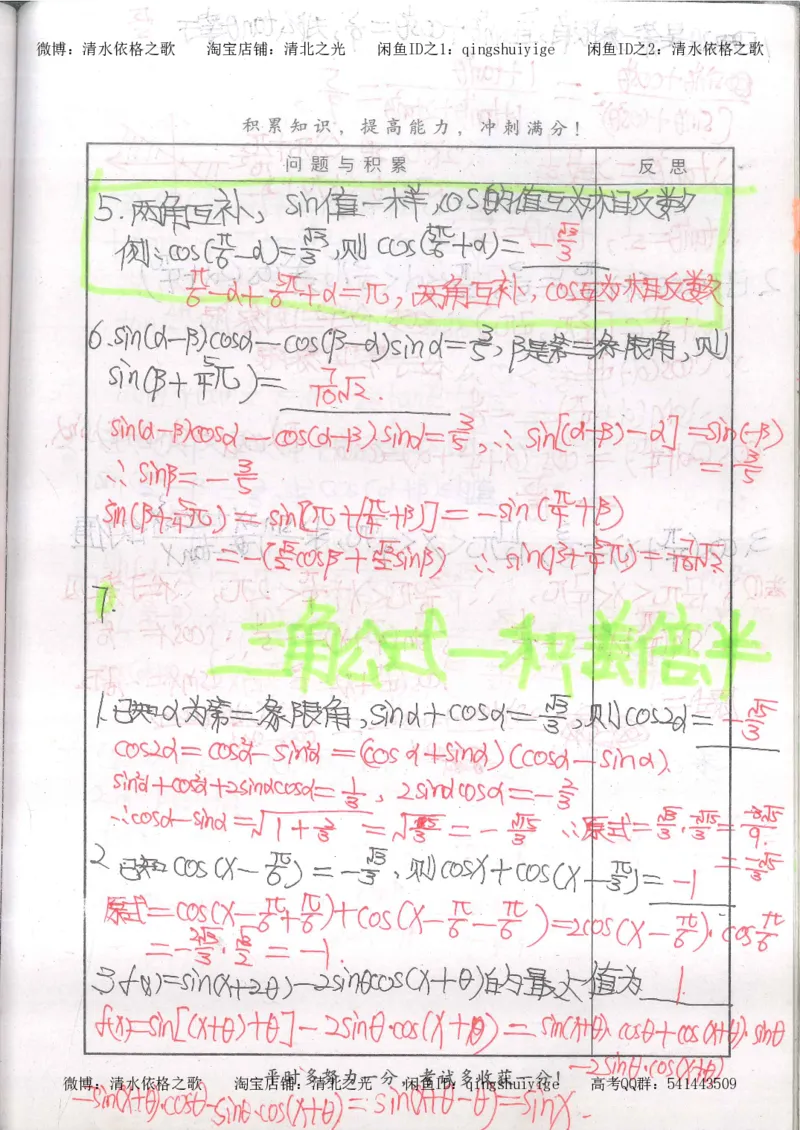 微博：清水依格之歌 淘宝店铺：清北之光 闲鱼ID之1：qingshuiyige 闲鱼ID之2：清水依格之歌
积累知识，提高能力，冲刺满分！
问题与积累 反思
5.两角互补，sin值一样，cos的值互为相反数
例：cos(π/6-α)=√3/3,则 cos(5π/6+α)= -√3/3
π/6-α+5π/6+α=π，两角互补，cos互为相反数
6.sin(α-β)cosα-cos(β-α)sinα=3/5,β是第三象限角，则
sin(β+5/4π)= 7/10√2.
sin(α-β)cosα-cos(α-β)sinα=3/5,∴sin[(α-β)-α]=sin(-β)
=3/5
∴sinβ=-3/5
sin(β+5/4π)=sin[π+(π/4+β)]=-sin(π/4+β)
=-(√2/2cosβ+√2/2sinβ) ∴sin(β+5/4π)=7/10√2
7.
三角公式—和差倍半
1.已知α为第二象限角，sinα+cosα=√3/3,则cos2α= -√5/3
cos2α=cos²α-sin²α=(cosα+sinα)(cosα-sinα).
sin²α+cos²α+2sinαcosα=1/3, 2sinαcosα=-2/3
∴cosα-sinα=√1+2/3 = = -√15/3 ∴原式=√3/3·√15/3=-3√5/9.
=-√5/3
2.已知cos(x-π/6)=-√3/3,则cosx+cos(x-π/3)= -1
原式=cos(x-π/6+π/6)+cos(x-π/6-π/6)=2cos(x-π/6)·cosπ/6
=-2√3/3·√3/2=-1.
3.f(x)=sin(x+2θ)-2sinθcos(x+θ)的最大值为 1.
f(x)=sin[(x+θ)+θ]-2sinθ·cos(x+θ)=sin(x+θ)·cosθ+cos(x+θ)·sinθ
-2sinθ·cos(x+θ)
平时多努力一分，考试多收获一分！
微博：清水依格之歌 淘宝店铺：清北之光 闲鱼ID：qingshuiyige 高考QQ群：541443509
=sin(x+θ)·cosθ-sinθ·cos(x+θ)=sin(x+θ-θ)=sinx.